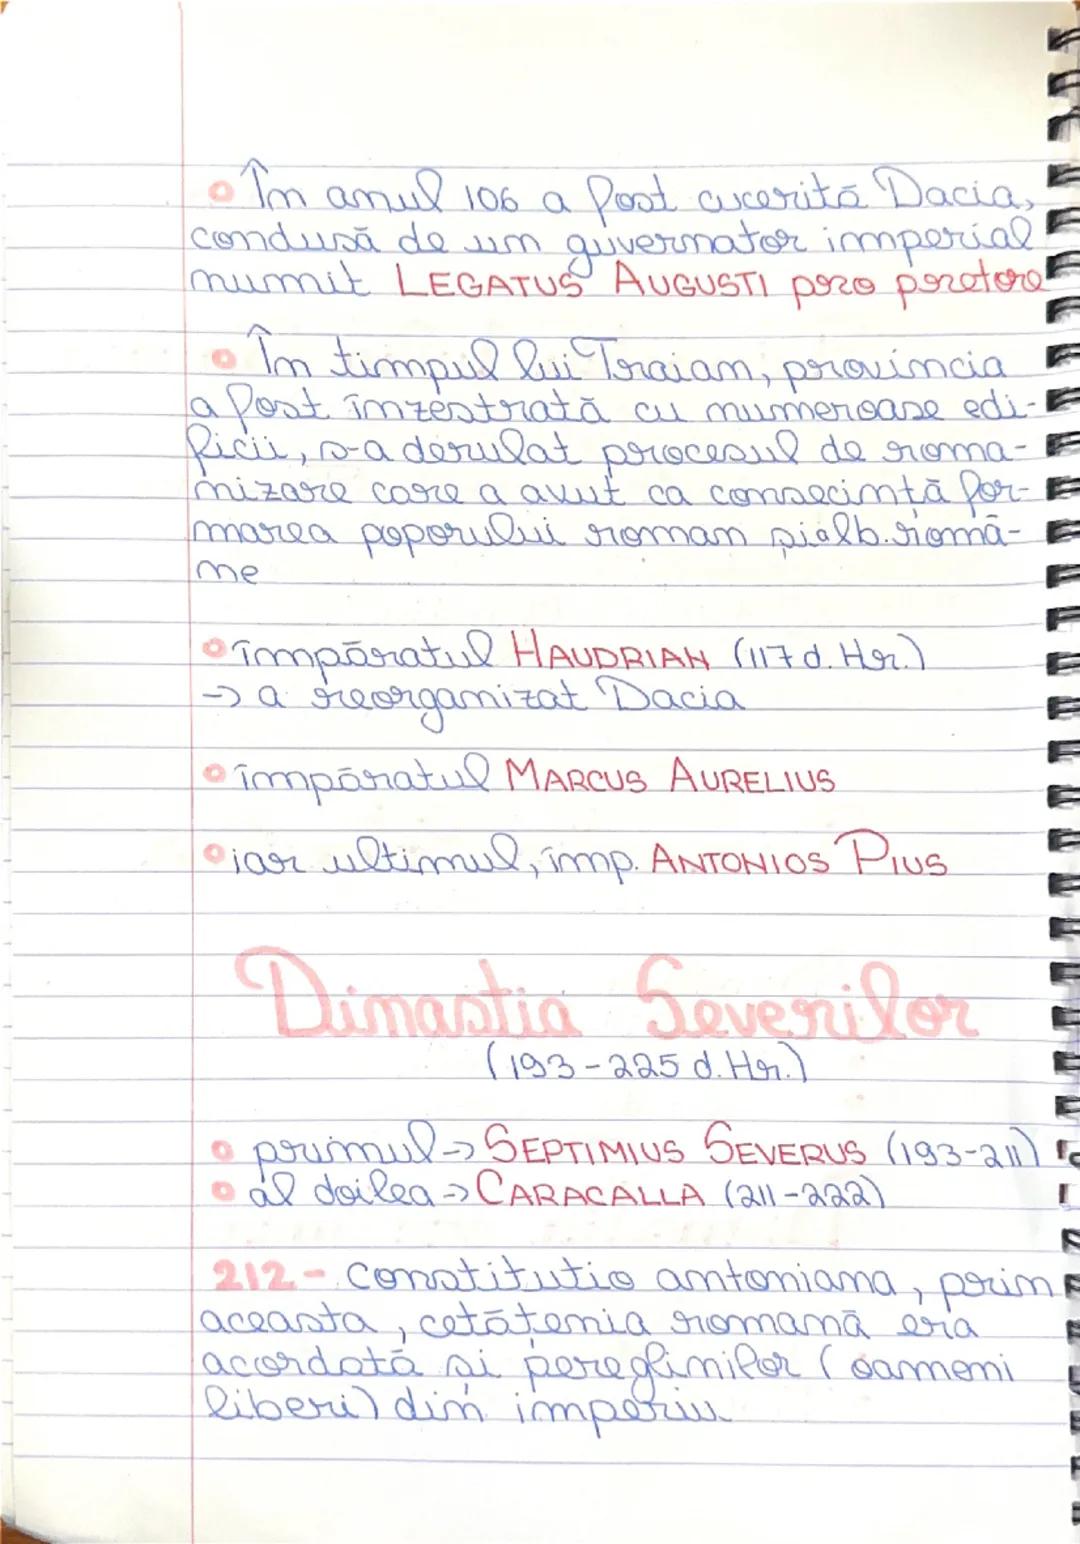 În anul 106 a fost cucerită Dacia,
condusă de un guvernator imperial
numit LEGATUS AUGUSTI pro pretore
În timpul lui Traian, provincia
a fost înzestrată cu numeroase edi-
ficii, s-a derulat procesul de roma-
nizare care a avut ca consecință for-
marea poporului roman și a lb. româ-
ne
împăratul HAUDRIAN (117 d. Hr.)
→ a reorganizat Dacia
împăratul MARCUS AURELIUS
iar ultimul, imp. ANTONIOS PIUS
Dinastia Severilor
(193-225 d. Hr.)
primul → SEPTIMIUS SEVERUS (193-211)
al doilea → CARACALLA (211-222)
212 - Constitutio antoniana, prin
aceasta, cetățenia romană era
acordată și pereglinilor (oameni
liberi) din imperiu